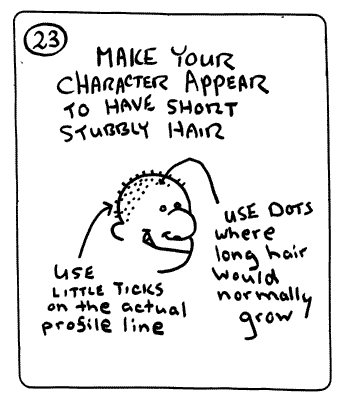 23
MAKE YOUR
CHARACTER APPEAR
TO HAVE SHORT
STUBBLY HAIR
USE DOTS
where
long hair
would
normally
grow
USE
LITTLE TICKS
on the actual
profile line